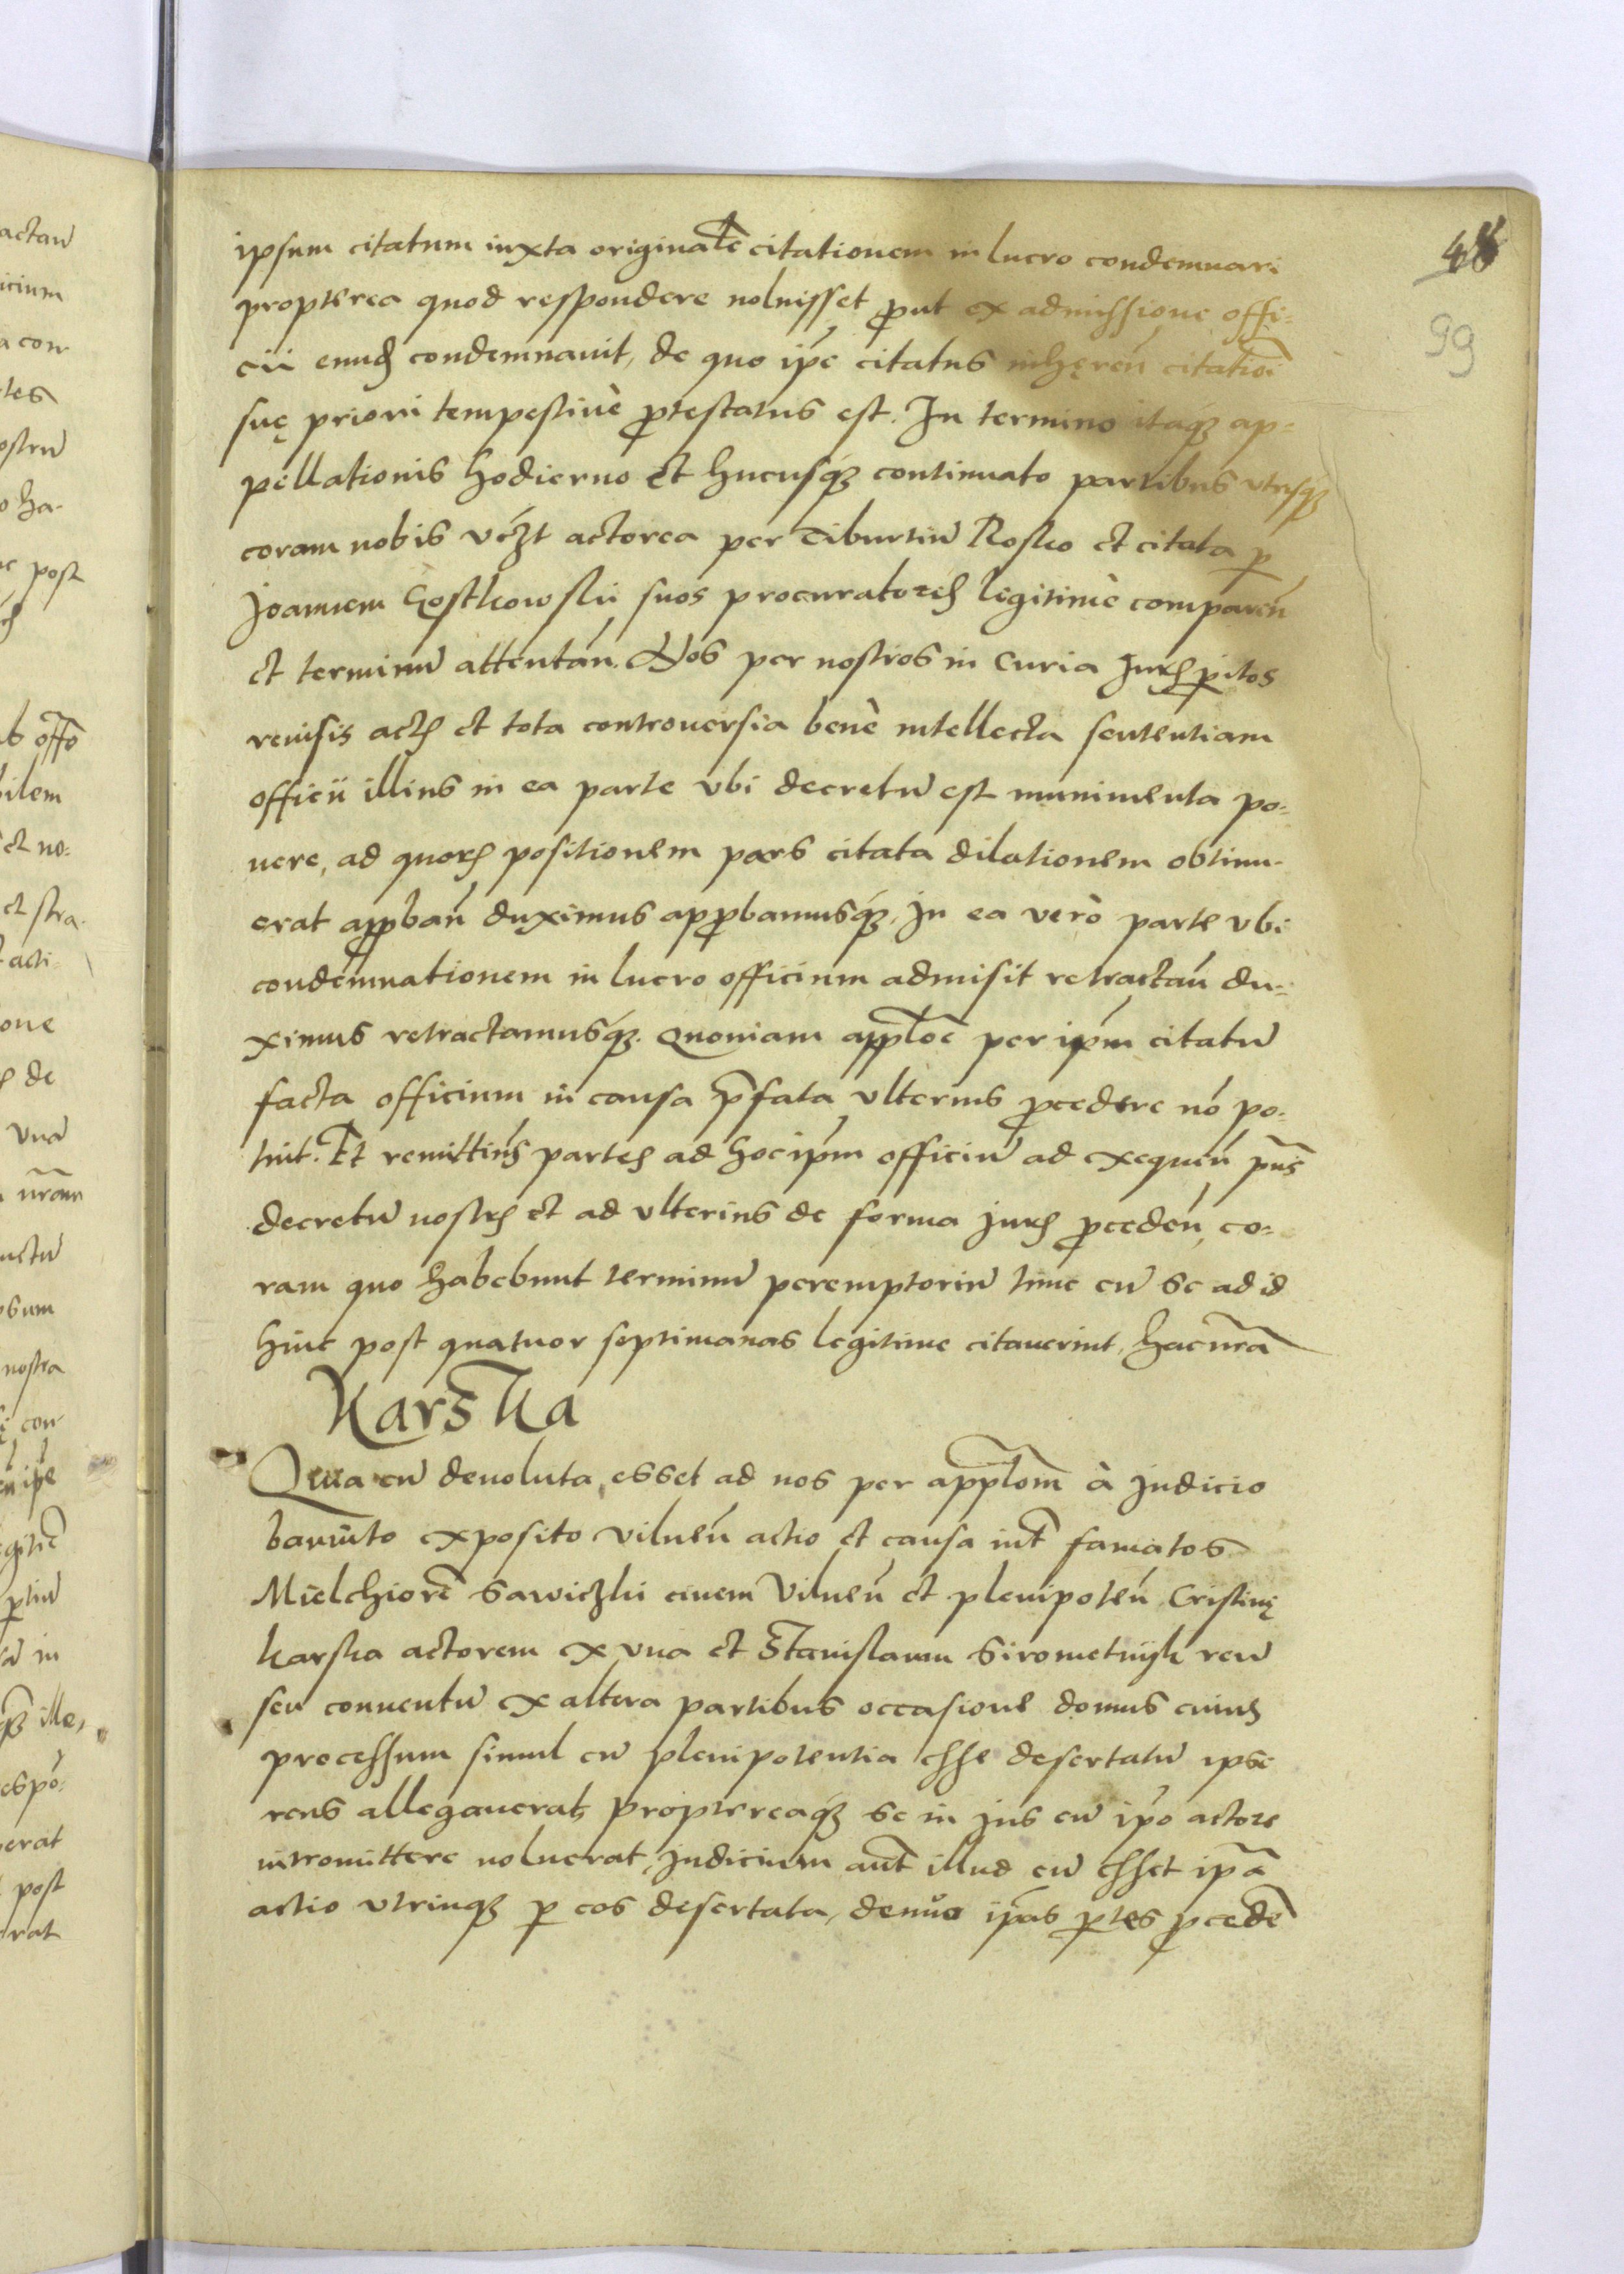 48
99
ipsum citatum iuxta originalē citationem in lucro condemnari
propterea quod respondere noluisset ꝓut ex admissione offi-
cii eundē condemnauit, de quo ip̄e citatus inhęreń citatioī
suę priori tempestiuè ꝓtestatus est. In termino itaqꝫ ap-
pellationis hodierno et hucusqꝫ continuato partibus vtrisqꝫ
coram nobis vꝫt actorea per Tiburtiū Rosko et citata ꝑ
Joannem Gostkowskii suos procuratores legitimè compareń
et terminū attentań. Nos per nostros in Curia Juris ꝑitos
reuisis actis et tota controuersia benè intellecta sententiam
officii illius in ea parte vbi decretū est munimenta po-
nere, ad quorū positionem pars citata dilationem obtinu-
erat apꝓbań duximus apꝓbamusqꝫ, in ea verò parte vbi
condemnationem in lucro officium admisit retractań du-
ximus retractamusqꝫ. Quoniam appłoē per ip̄m citatū
facta officium in causa p̄fata vlterius ꝓcedere nō po-
tuit. Et remittimꝰ partes ad hoc ip̄m officiū ad exequeń pn̄s
decretū nostrū et ad vlterius de forma juris ꝓcedeń, co-
ram quo habebunt terminū peremptoriū tunc cū se ad id
hinc post quatuor septimanas legitime citauerint, hac nr̄a
Karska
Quia cū deuoluta esset ad nos per appłom̄ à Judicio
bannito exposito vilneń actio et causa int̄ famatos
Mielchiorē Sawiczkii ciuem Vilneń et plenipoteń Cristinę
karska actorem ex vna et Stanislaum Sirometnyk reū
seu conuentū ex altera partibus occasione domus cuius
processum simul cū plenipotentia esse desertatū ipse
reus allegauerat, proptereaqꝫ se in jus cū ip̄o actore
intromittere noluerat, Judicium aūt illud cū esset ip̄a
actio vtrinqꝫ ꝑ eos desertata, denuo ip̄as ꝑtes ꝓcedē